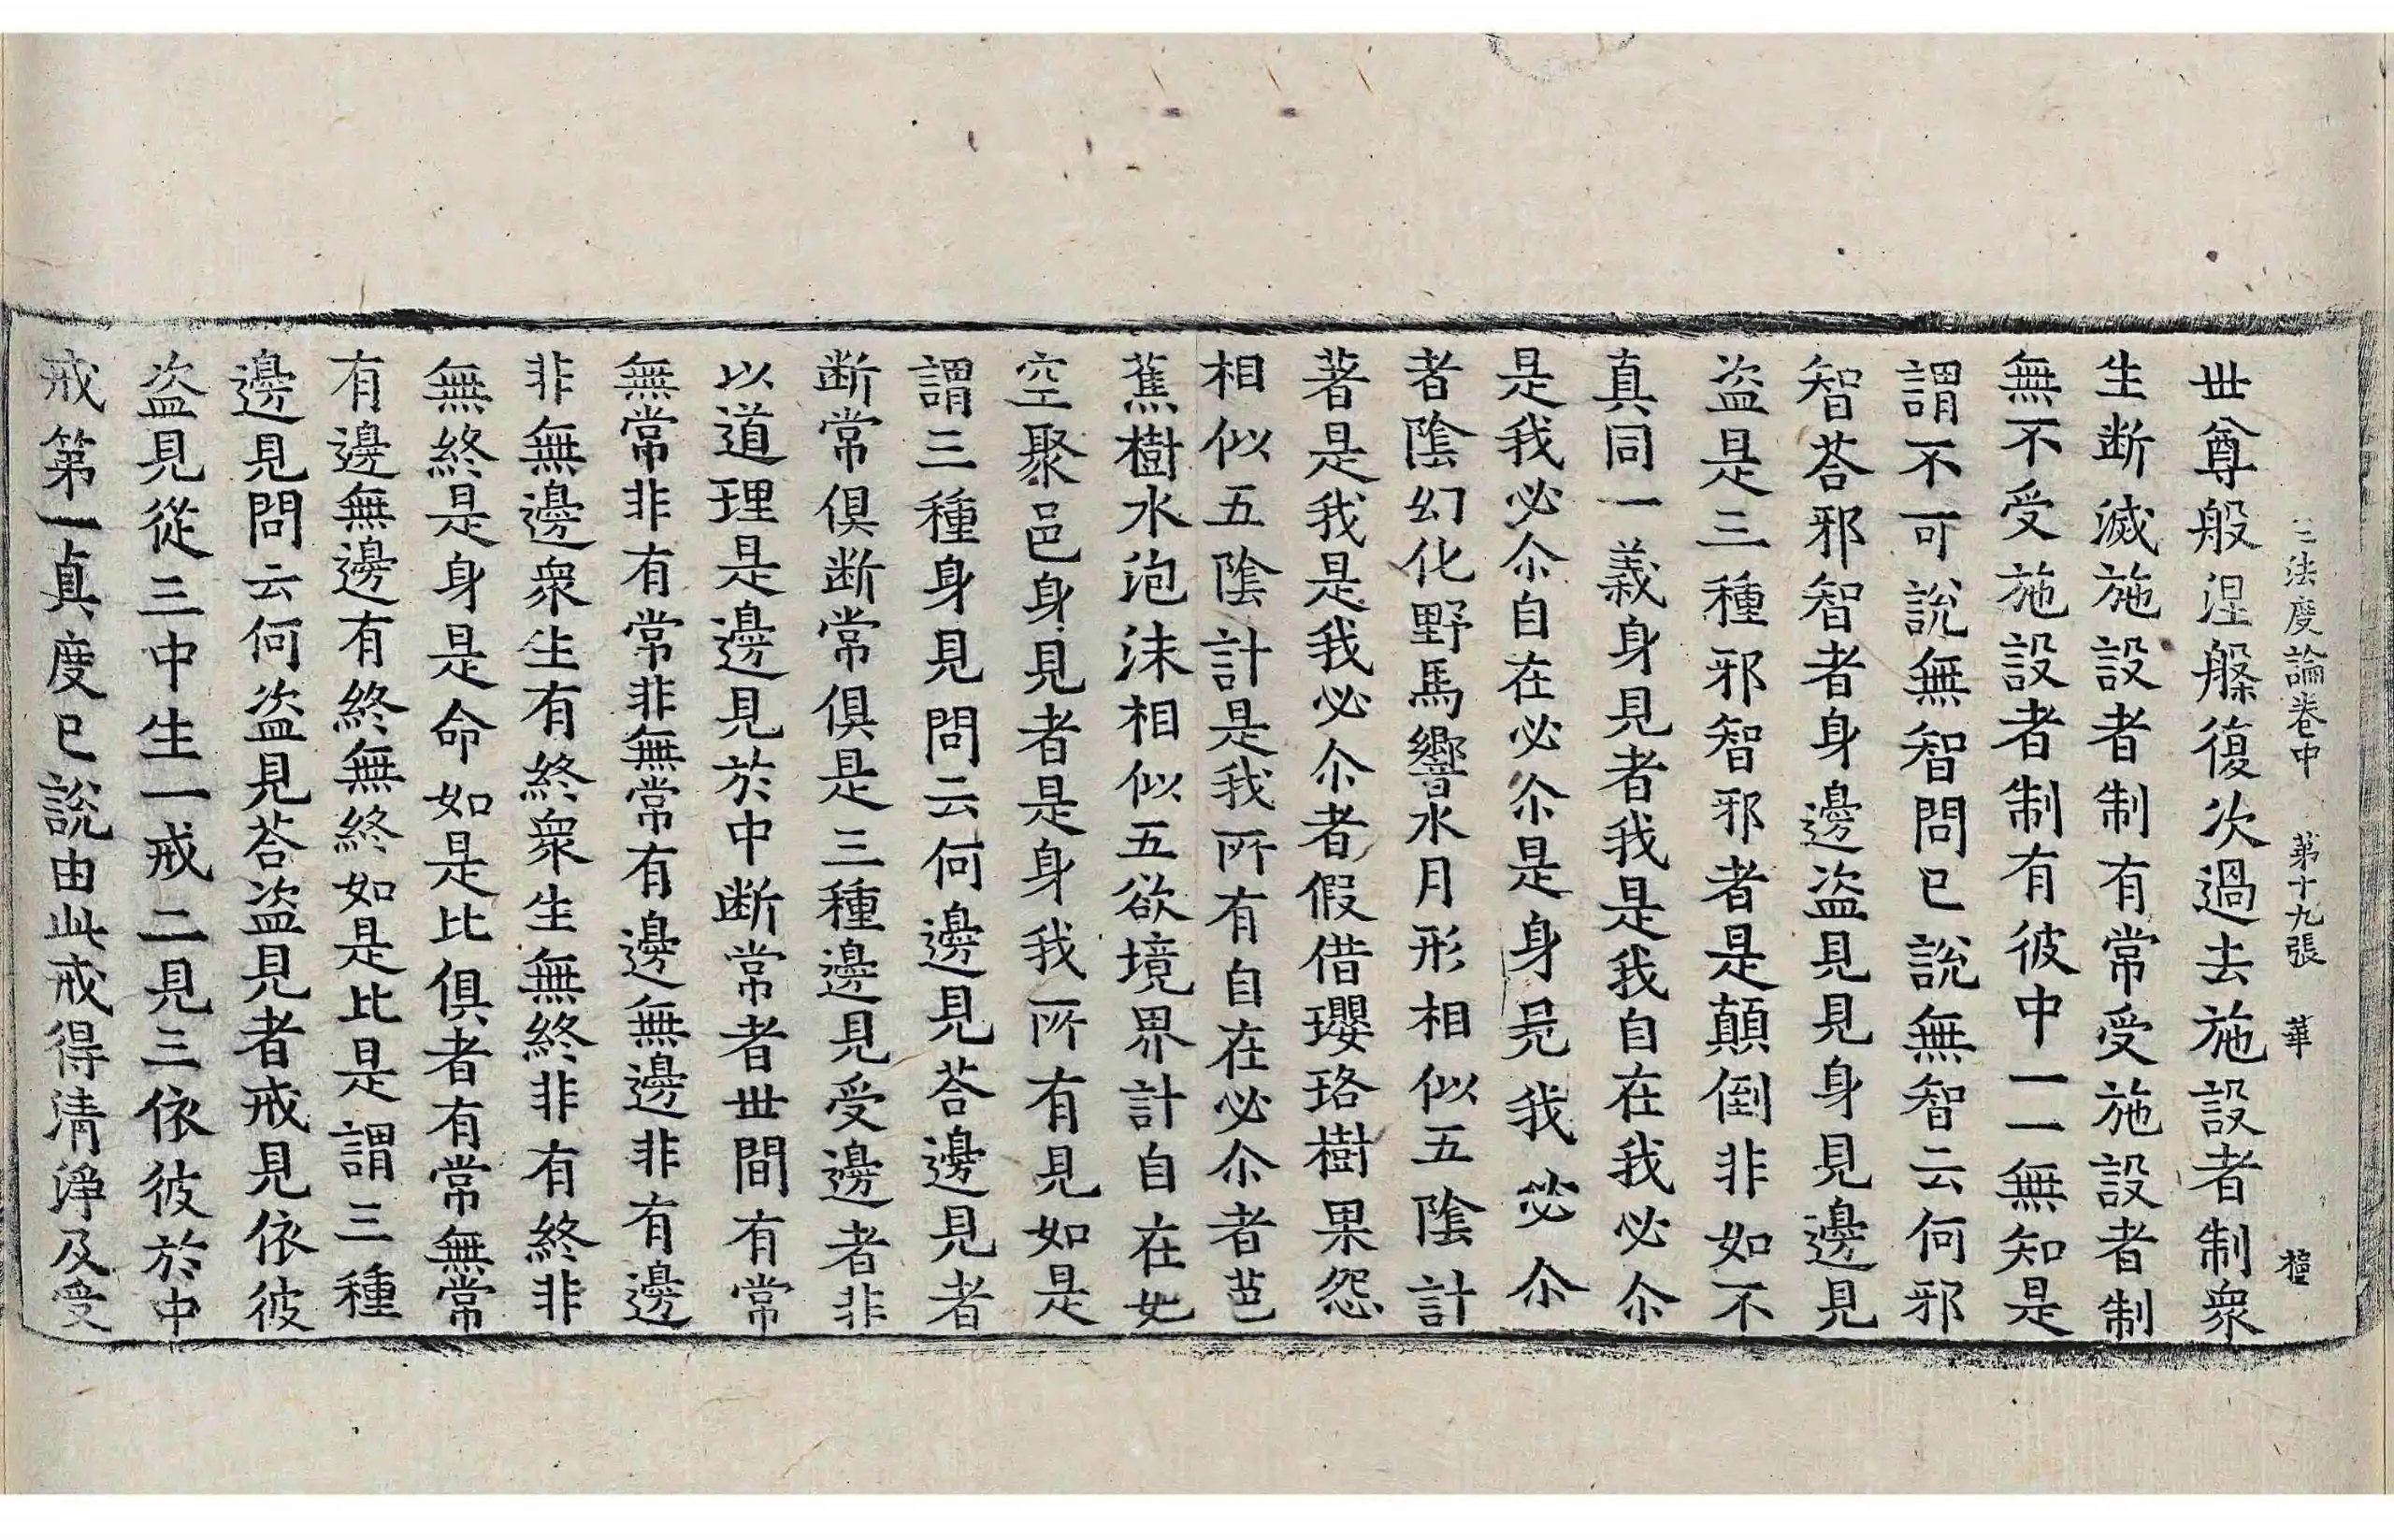 三法度論卷中 第十九張 華 𣝕
世尊般涅槃復次過去施設者制衆
生断滅施設者制有常受施設者制
無不受施設者制有彼中一一無知是
謂不可說無智問已說無智云何邪
智荅邪智者身邊盜見見身見邊見
盜是三種邪智邪者是顛倒非如不
真同一義身見者我是我自在我必尒
是我必尒自在必尒是身見我必尒
者陰幻化野馬響水月形相似五陰計
著是我是我必尒者假借瓔珞樹果怨
相似五陰計是我所有自在必尒者芭
蕉樹水泡沫相似五欲境界計自在如
空聚邑身見者是身我所有見如是
謂三種身見問云何邊見荅邊見者
断常俱断常俱是三種邊見受邊者非
以道理是邊見於中断常者世間有常
無常非有常非無常有邊無邊非有邊
非無邊衆生有終衆生無終非有終非
無終是身是命如是比俱者有常無常
有邊無邊有終無終如是比是謂三種
邊見問云何盜見荅盜見者戒見依彼
盜見從三中生一戒二見三依彼於中
戒第一真度已說由此戒得清淨及受